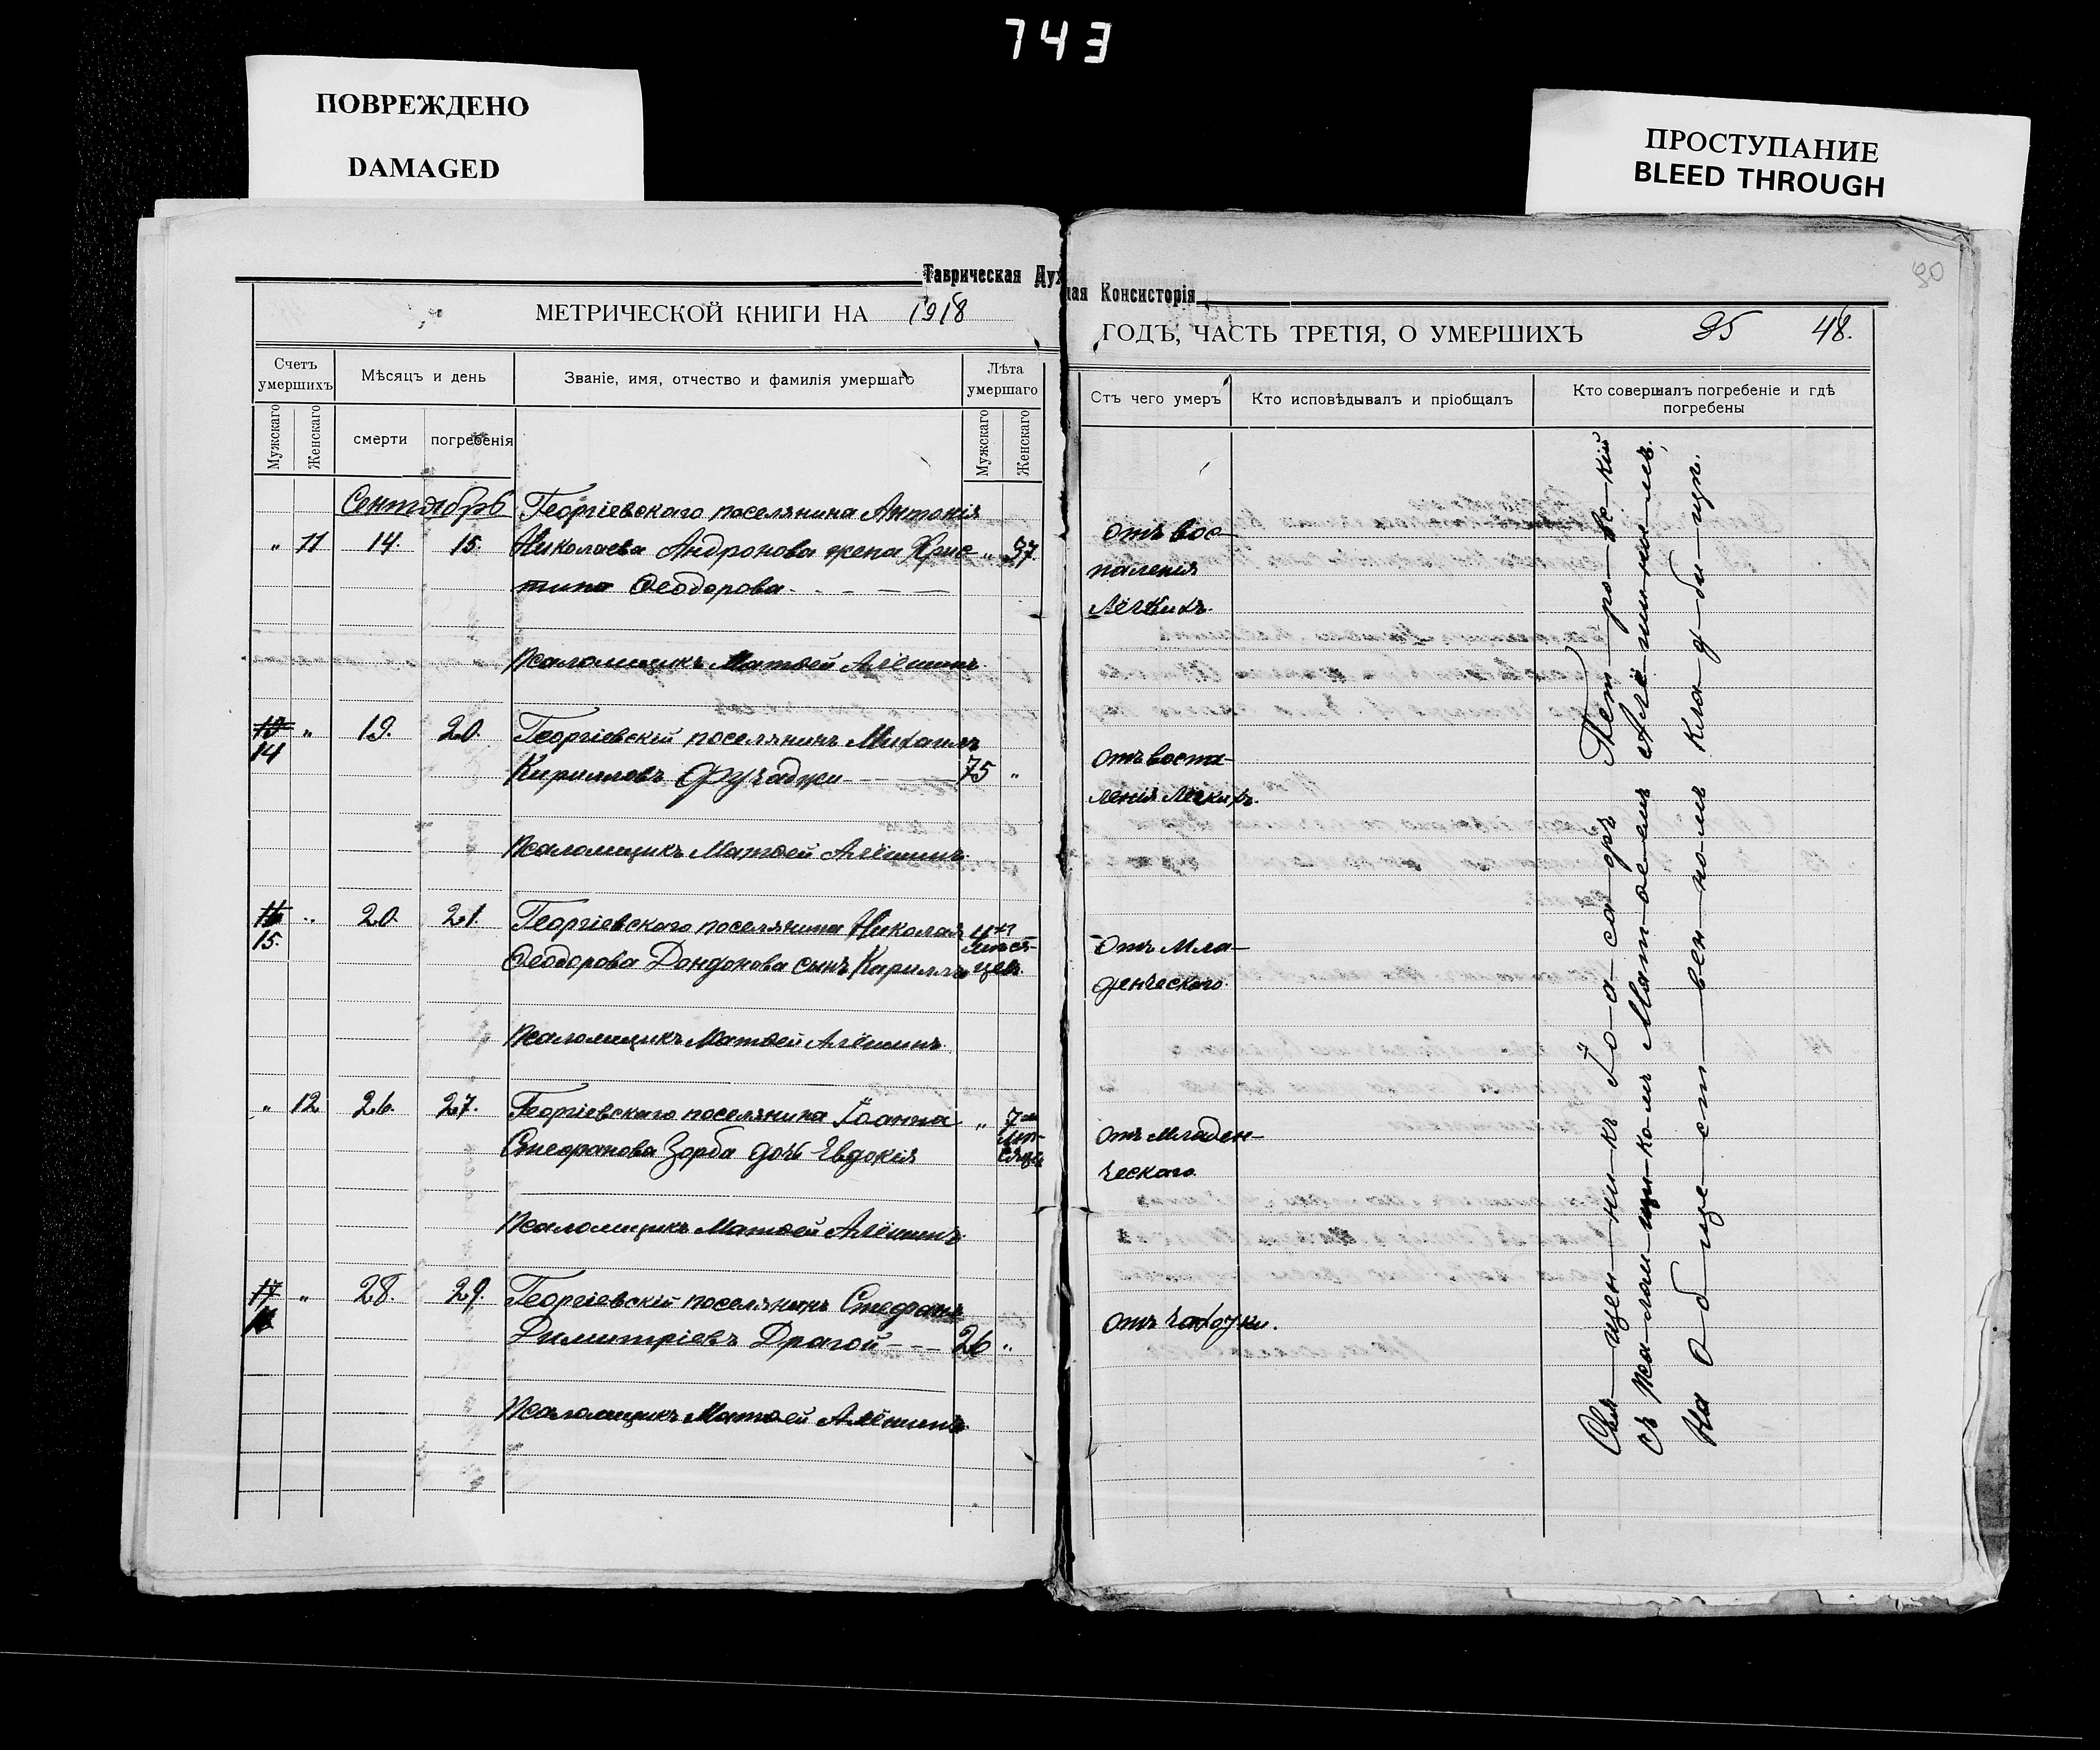 743
ПОВРЕЖДЕНО
DAMAGED
ПРОСТУПАНИЕ
BLEED THROUGH
Таврическая Дух
ная Консисторія
90
МЕТРИЧЕСКОЙ КНИГИ НА 1918
ГОДЪ, ЧАСТЬ ТРЕТІЯ, О УМЕРШИХЪ 48.
Счетъ умершихъ
Мужскаго
Женскаго
Мѣсяцъ и день
смерти
погребенія
Званіе, имя, отчество и фамилія умершаго
Лѣта умершаго
Мужскаго
Женскаго
Отъ чего умеръ
Кто исповѣдывалъ и пріобщалъ
Кто совершалъ погребеніе и гдѣ
погребены
Сентябрь Георгіевскаго поселянина Антонія
" 11 14. 15. Николаева Андронова жена Хрис- " 37
тина Ѳеодорова
отъ вос-
паленія
лёгкихъ.
Псаломщикъ Матѳей Алёшинъ.
14 " 19. 20. Георгіевскій поселянинъ Михаилъ
Кирилловъ Фучаджи 75 "
отъ воспа-
ленія лёгкихъ.
Псаломщикъ Матѳей Алёшинъ.
15. " 20. 21. Георгіевскаго поселянина Николая
Ѳеодорова Дондонова сынъ Кириллъ
4 мѣся-
цев.
отъ мла-
денческаго.
Псаломщикъ Матѳей Алёшинъ.
" 12 26. 27. Георгіевскаго поселянина Іоанна "
Стефанова Зорба дочь Евдокія
7
мѣ-
сяц
отъ младен-
ческаго
Псаломщикъ Матѳей Алёшинъ.
17 " 28. 29. Георгіевскій поселянинъ Стефанъ
Димитріевъ Драгой 26 "
отъ чахотки.
Псаломщикъ Матѳей Алёшинъ.
Свя-щен-ни-къ Іо-а-са-фъ Пет-ро-вс-кій
съ псаломщикомъ Матѳеемъ Алёшинымъ,
на обще-ст-вен-номъ клад-би-щѣ.